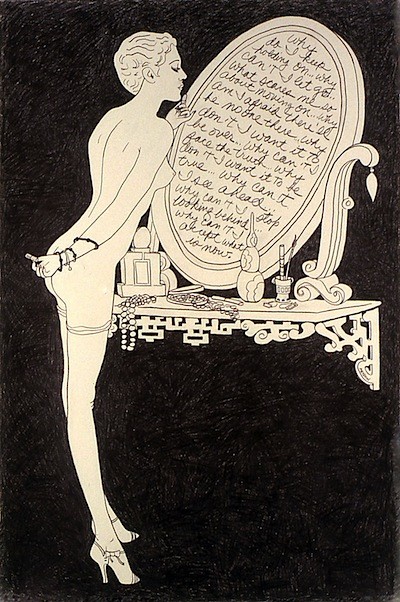 why
do I keep
holding on.. why
can't I let go?
what scares me so
about moving on... why
am I afraid there'll
be no one there.. why
don't I want it to
be over.. why can't I
face the truth.. why
don't I want it to be
true... why can't
I see ahead..
why can't I stop
looking behind...
why can't I...
accept what
is now.